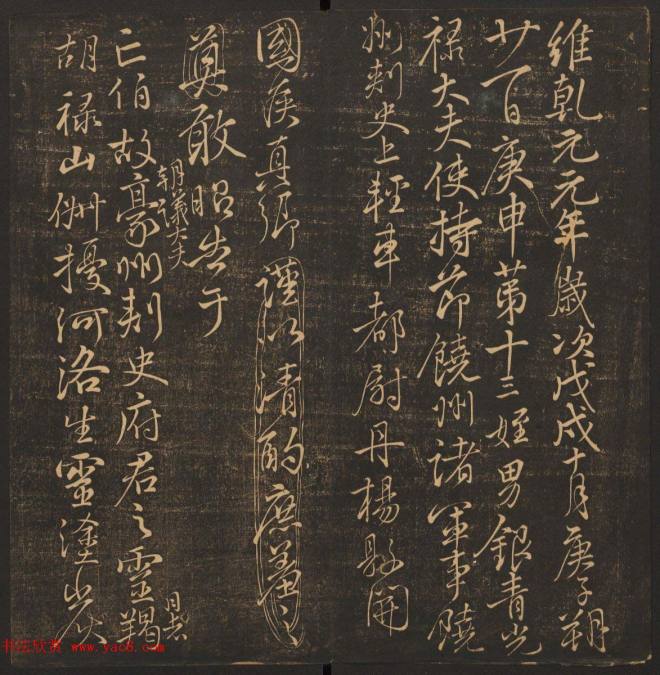 維乾元元年歲次戊戌十月庚子朔
廿一日庚申第十三姪男銀青光
禄大夫使持節饒州諸軍事饒
州刾史上輕車都尉丹楊縣開
國侯真卿謹以清酌庶羞之
奠敢昭告于
朝議大夫
亡伯故豪州刾史府君之靈羯
日者
胡禄山俶擾河洛生靈塗炭
书法欣赏 www.yac8.com